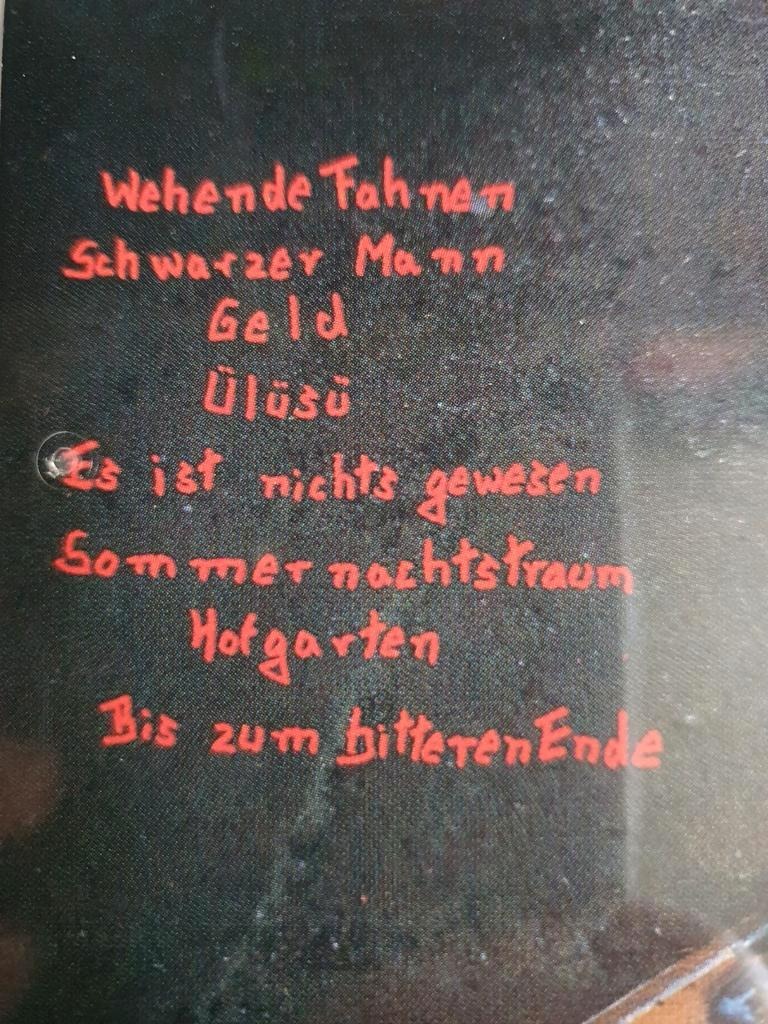 Wehende Fahnen
Schwarzer Mann
Geld
Ülüsü
Es ist nichts gewesen
Sommernachtstraum
Hofgarten
Bis zum bitteren Ende